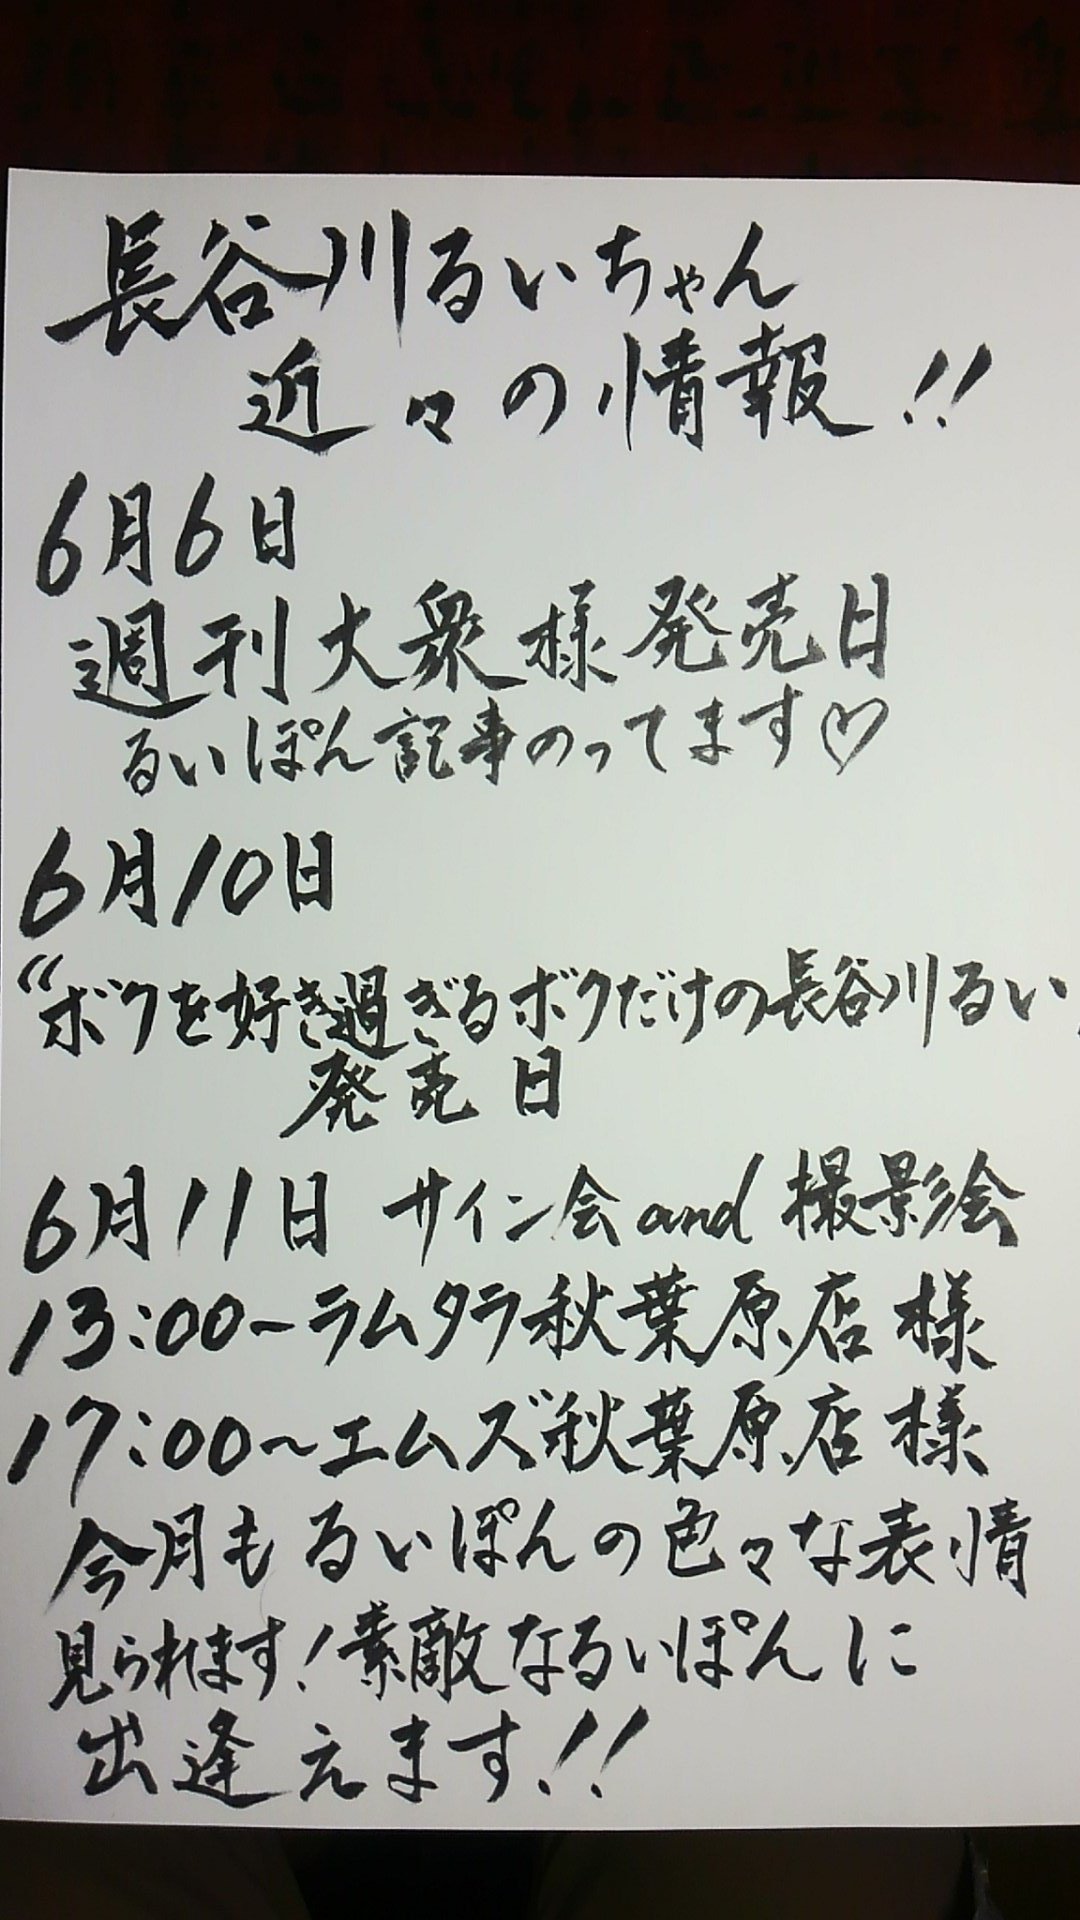 長谷川るいちゃん
近々の情報!!
6月6日
週刊大衆様発売日
るいぽん記事のってます♡
6月10日
“ボクを好き過ぎるボクだけの長谷川るい
発売日
6月11日 サイン会and撮影会
13:00~ラムタラ秋葉原店様
17:00~エムズ秋葉原店様
今月もるいぽんの色々な表情
見られます!素敵なるいぽんに
出逢えます!!